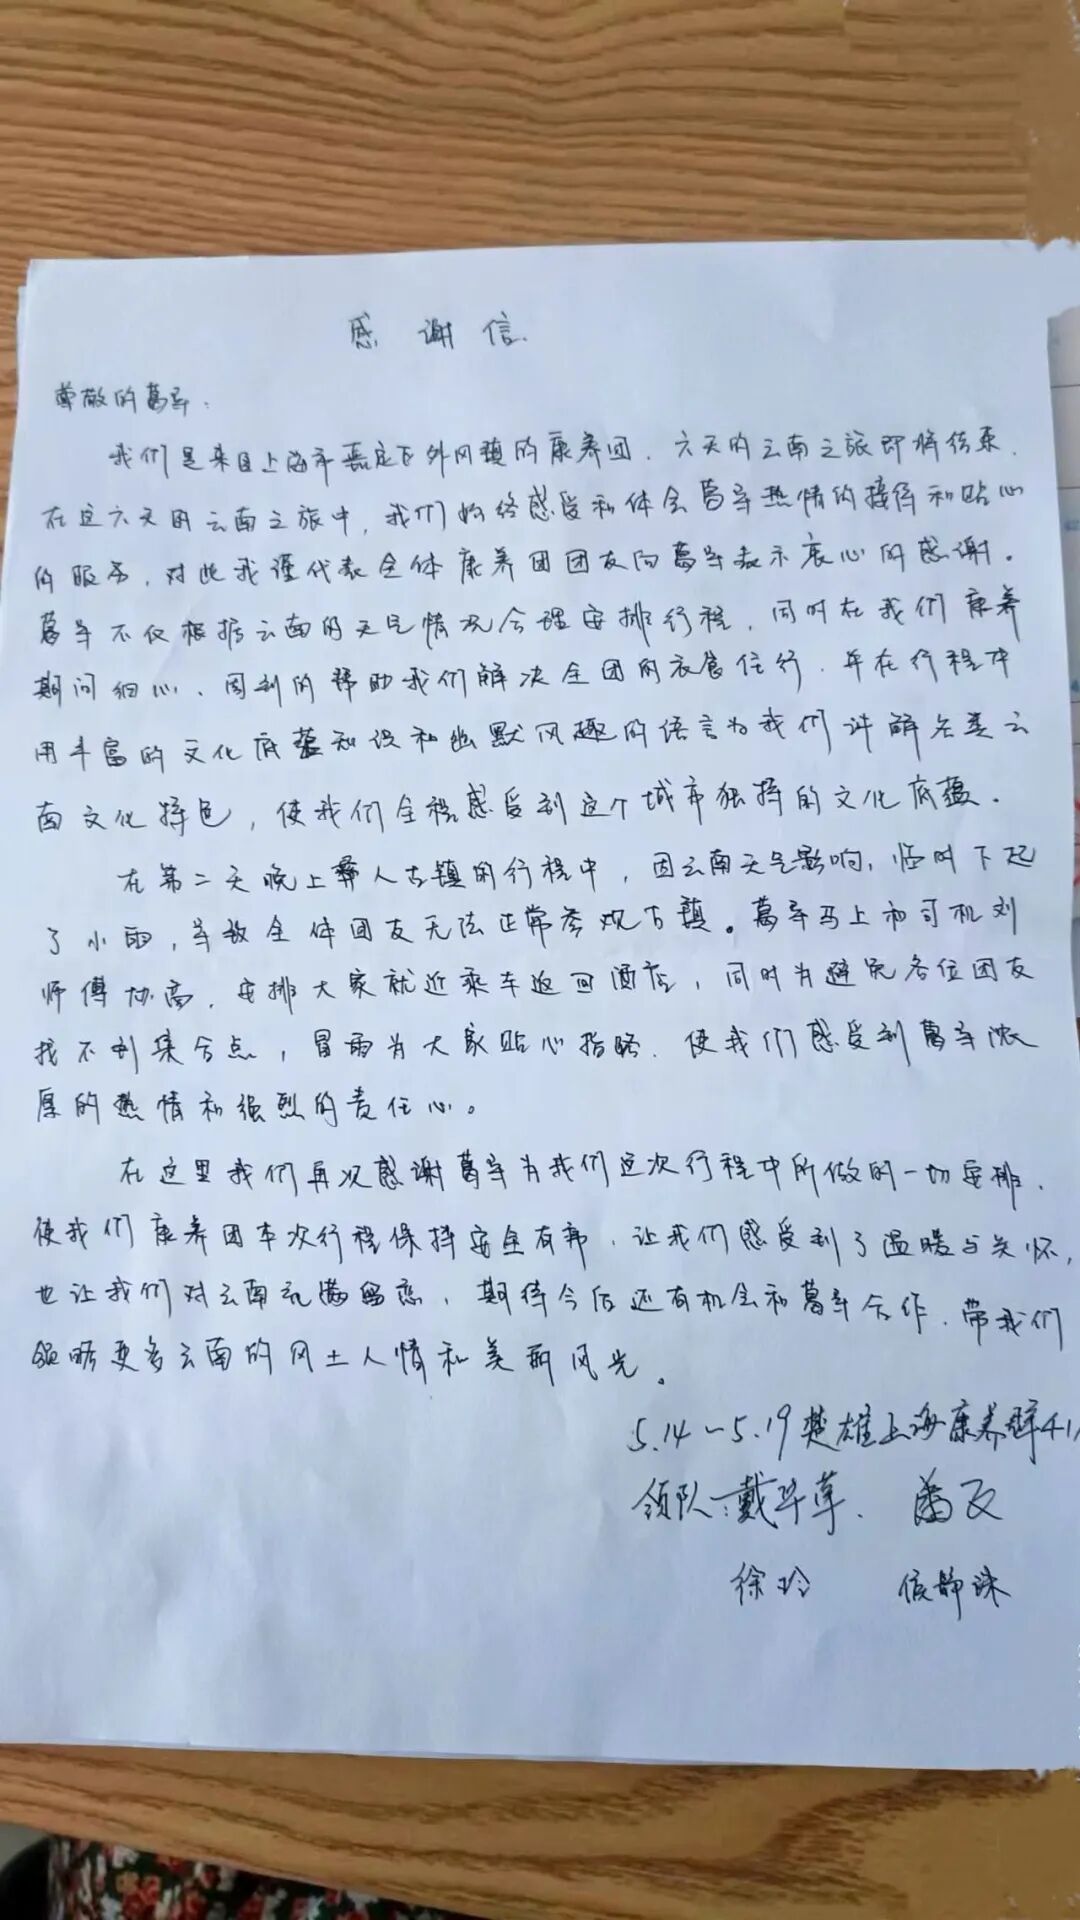 感谢信
尊敬的葛导：
我们是来自上海市嘉定区外冈镇的康养团，六天的云南之旅即将结束，
在这六天的云南之旅中，我们始终感受和体会葛导热情的接待和贴心
的服务，对此我谨代表全体康养团团友向葛导表示衷心的感谢。
葛导不仅根据云南的天气情况合理安排行程，同时在我们康养
期间细心、周到的帮助我们解决全团的衣食住行，并在行程中
用丰富的文化底蕴知识和幽默风趣的语言为我们讲解各类云
南文化特色，使我们全程感受到这个城市独择的文化底蕴。
在第二天晚上彝人古镇的行程中，因云南天气影响，临时下起
了小雨，导致全体团友无法正常参观古镇。葛导马上和司机刘
师傅协商，安排大家就近乘车返回酒店，同时为避免各位团友
找不到集合点，冒雨为大家贴心指路，使我们感受到葛导浓
厚的热情和强烈的责任心。
在这里我们再次感谢葛导为我们这次行程中所做的一切安排，
使我们康养团本次行程保持安全有序，让我们感受到了温暖与关怀，
也让我们对云南充满留恋，期待今后还有机会和葛导合作，带我们
领略更多云南的风土人情和美丽风光。
5.14～5.19楚雄上海康养群41人
领队：戴华草、潘
徐玲 侯静珠